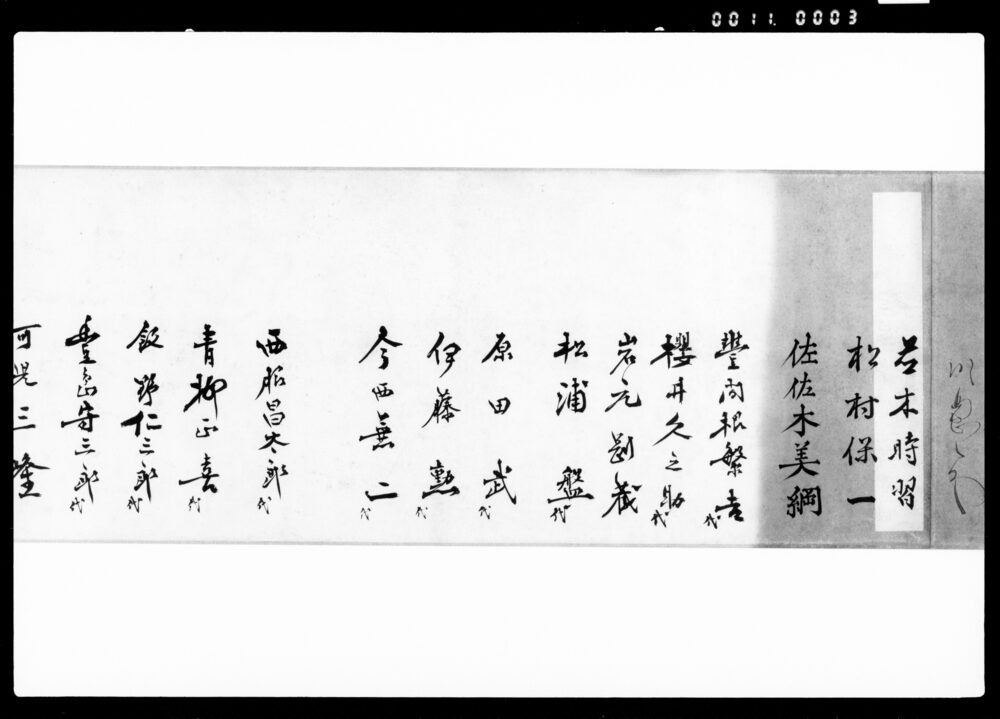 0011.0003
木時習
松村保一
佐佐木美綱
豐間根繁吉代
櫻井久之助代
岩元
松浦 盤代
原田 武代
伊藤 勲代
今西兼二代
西脇昌太郎代
青柳正喜代
飯野仁三郎代
豊島寺三郎代
可児三隆